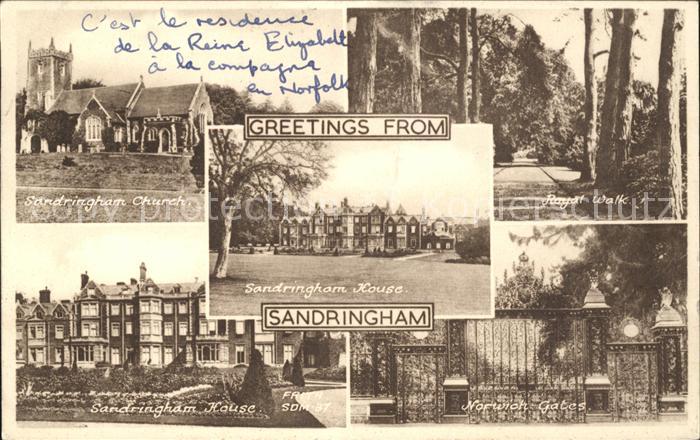 C'est le residence
de la Reine Elizabeth
à la compagne
en Norfolk
GREETINGS FROM
Sandringham Church.
Royal Walk
Sandringham House.
SANDRINGHAM
Sandringham House
FRITH
SDM 57
Norwich Gates